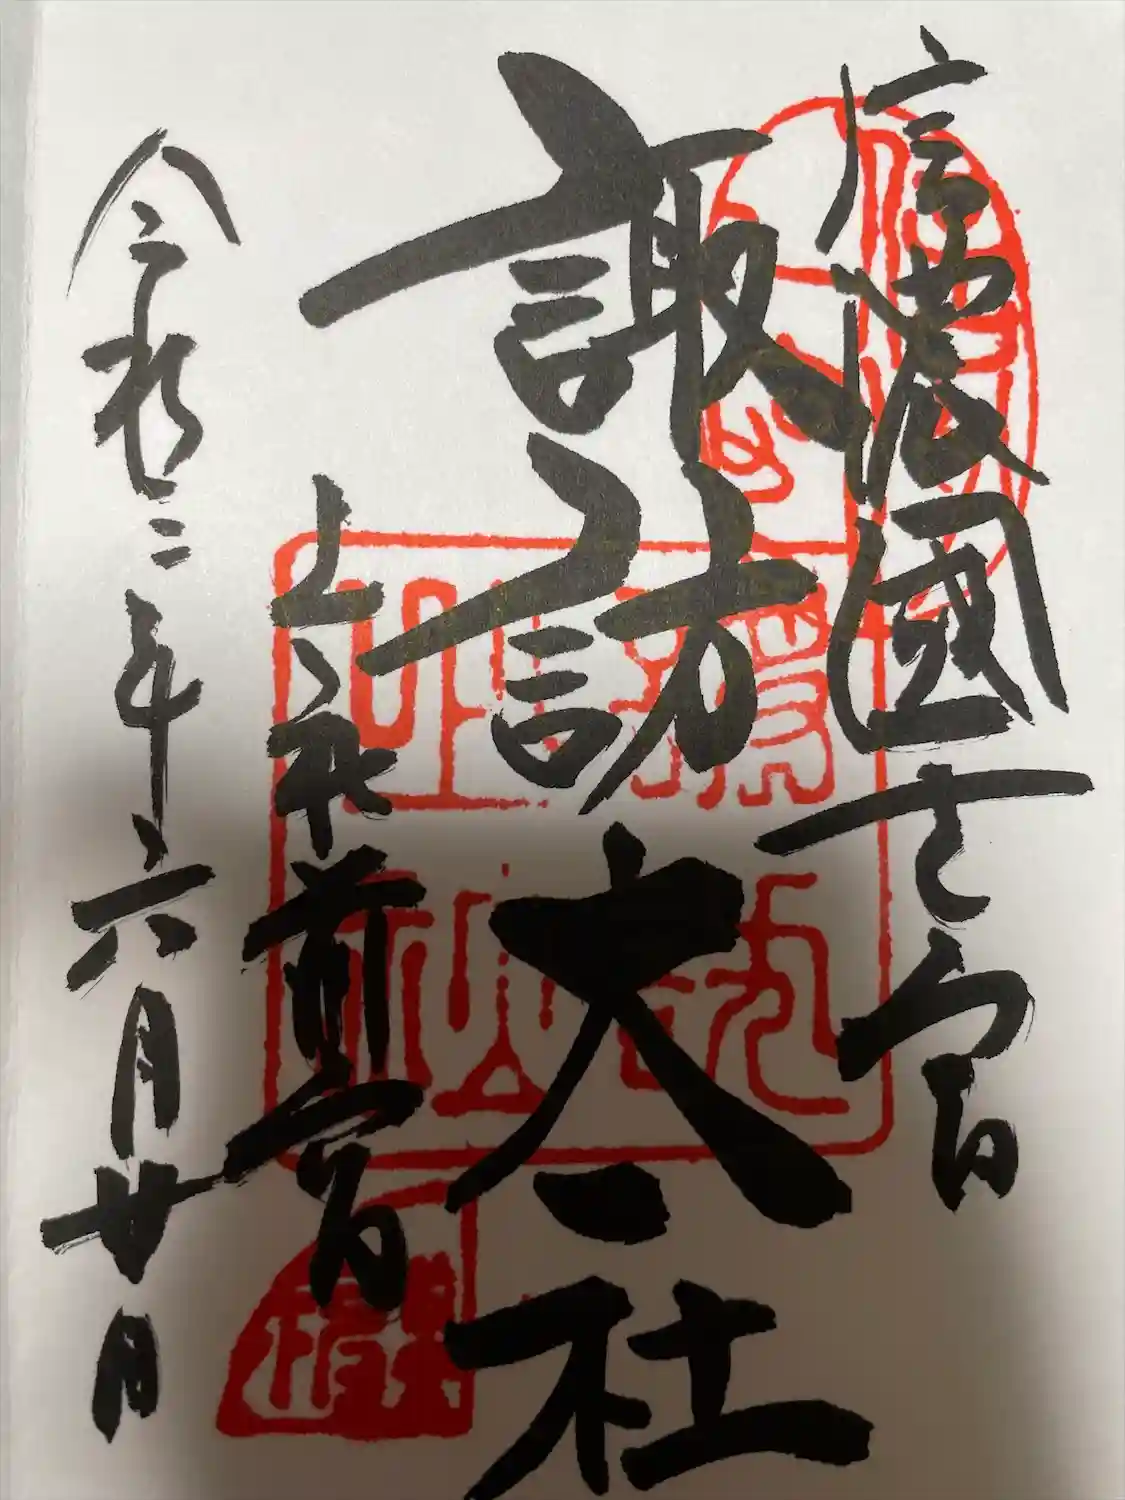 信濃國一之宮
諏訪大社
上社前宮
令和二年六月廿日